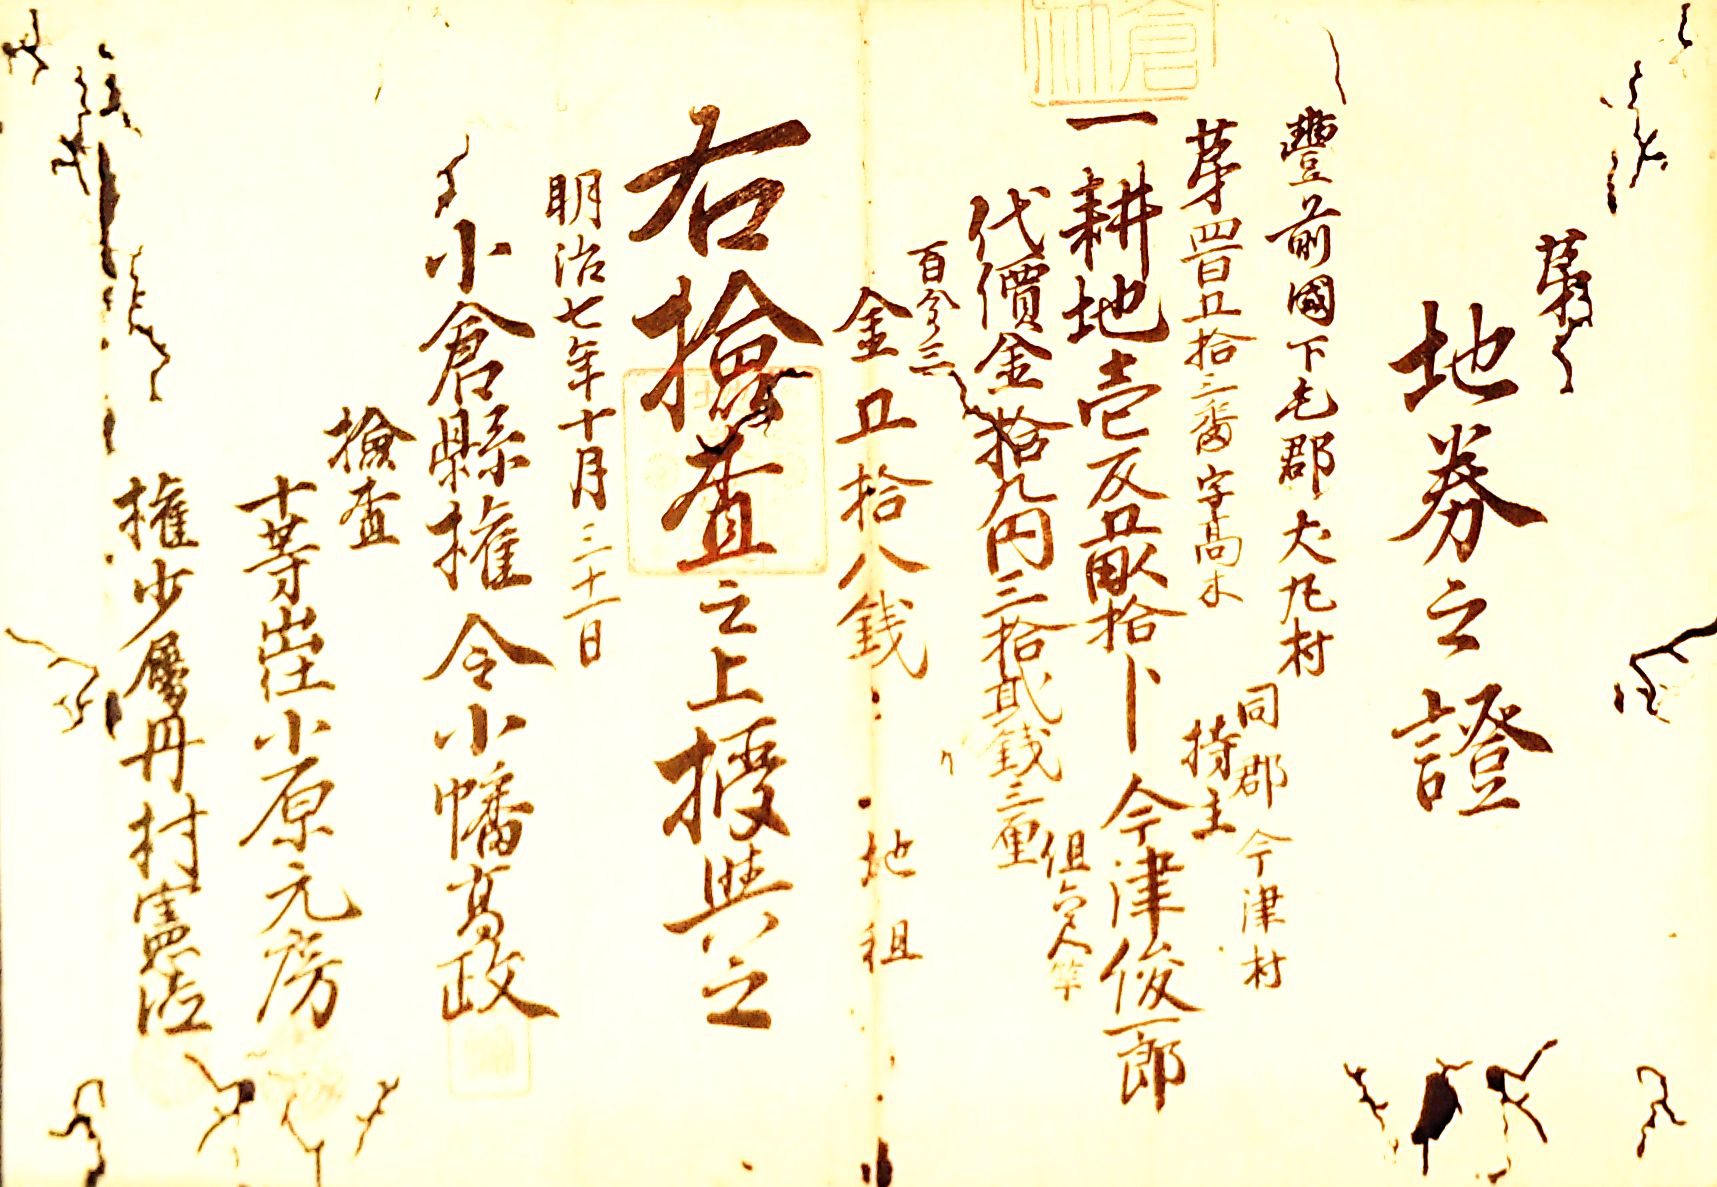 第
地券之證
豐前國下毛郡犬丸村
第四百五拾三番字高木
同郡今津村
持主
一耕地壱反五畝拾卜
今津俊一郎
代價金拾九円三拾貮銭三厘
但六尺竿
百分三
金五拾八銭
地租
右撿査之上授與之
明治七年十月三十一日
小倉縣權令小幡髙政
撿査
十等出仕小原元房
權少属丹村憲治